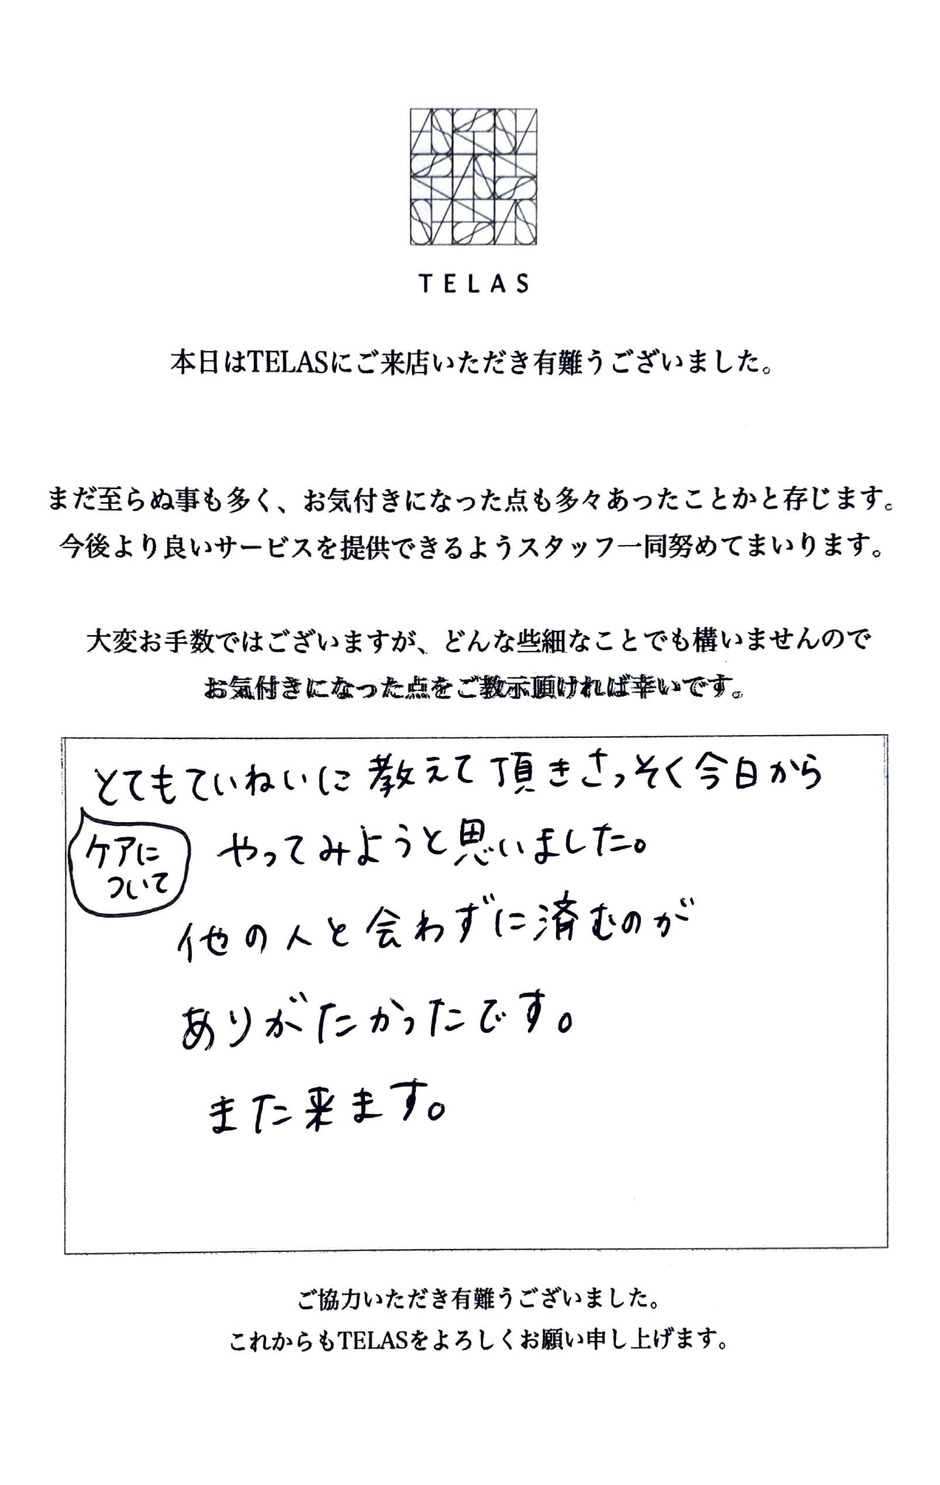 TELAS
本日はTELASにご来店いただき有難うございました。
まだ至らぬ事も多く、お気付きになった点も多々あったことかと存じます。
今後より良いサービスを提供できるようスタッフ一同努めてまいります。
大変お手数ではございますが、どんな些細なことでも構いませんので
お気付きになった点をご教示頂ければ幸いです。
とてもていねいに教えて頂きさっそく今日から
ケアに
ついて
やってみようと思いました。
他の人と会わずに済むのが
ありがたかったです。
また来ます。
ご協力いただき有難うございました。
これからもTELASをよろしくお願い申し上げます。